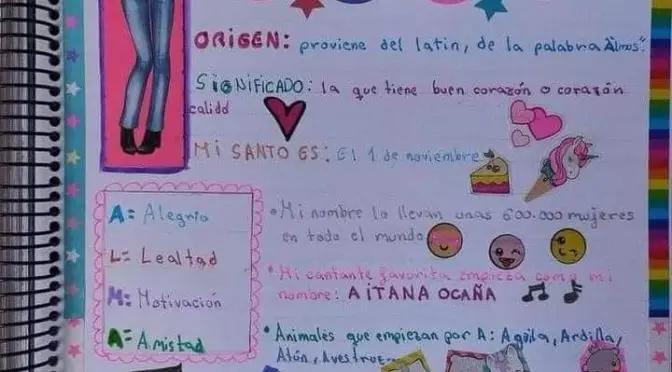 ORIGEN: proviene del latin, de la palabra "Almos".
SIGNIFICADO: la que tiene buen corazón o corazón
calidd
Mi SANTO ES: El 1 de noviembre
A= Alegria
L= Lealtad
M= Motivación
A= Amistad
• Mi nombre lo llevan unas 600.000 mujeres
en todo el mundo
• Mi cantante favorita empieza como mi
nombre: AITANA OCAÑA
• Animales que empiezan por A: Aguila, Ardilla,
Atún, Avestruz